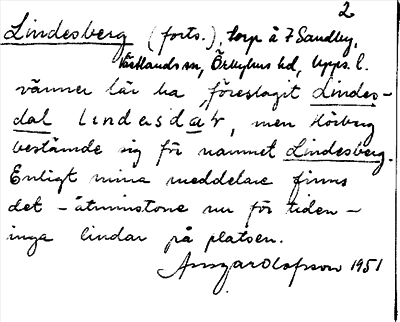 2
Lindesberg (forts.), torp å 7 Sandby,
Västlands sn, Örbyhus hd, Upps. l.
vänner lär ha föreslagit Lindes-
dal lindesdar, men Hörberg
bestämde sig för namnet Lindesberg.
Enligt mina meddelare finns
det - åtminstone nu för tiden -
inga lindar på platsen.
Ansgar Olofsson 1951